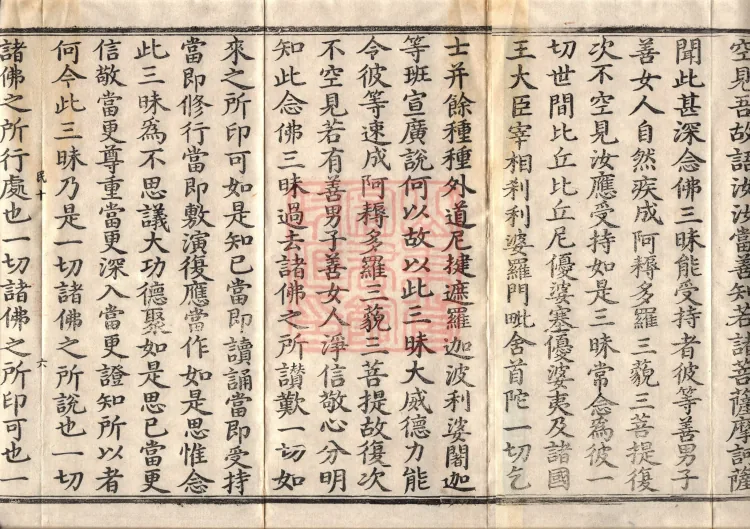 空見吾故語汝汝當善知若諸菩薩摩訶薩
聞此甚深念佛三昧能受持者彼等善男子
善女人自然疾成阿耨多羅三藐三菩提復
次不空見汝應受持如是三昧常念為彼一
切世間比丘比丘尼優婆塞優婆夷及諸國
王大臣宰相剎利婆羅門毗舍首陀一切乞
士并餘種種外道尼揵遮羅迦波利婆闍迦
等班宣廣說何以故以此三昧大威德力能
令彼等速成阿耨多羅三藐三菩提故復次
不空見若有善男子善女人淨信敬心分明
知此念佛三昧過去諸佛之所讃歎一切如
來之所印可如是知已當即讀誦當即受持
當即修行當即敷演復應當作如是思惟念
此三昧為不思議大功德聚如是思已當更
信敬當更尊重當更深入當更證知所以者
何今此三昧乃是一切諸佛之所說也一切
民十 六
諸佛之所行處也一切諸佛之所印可也一